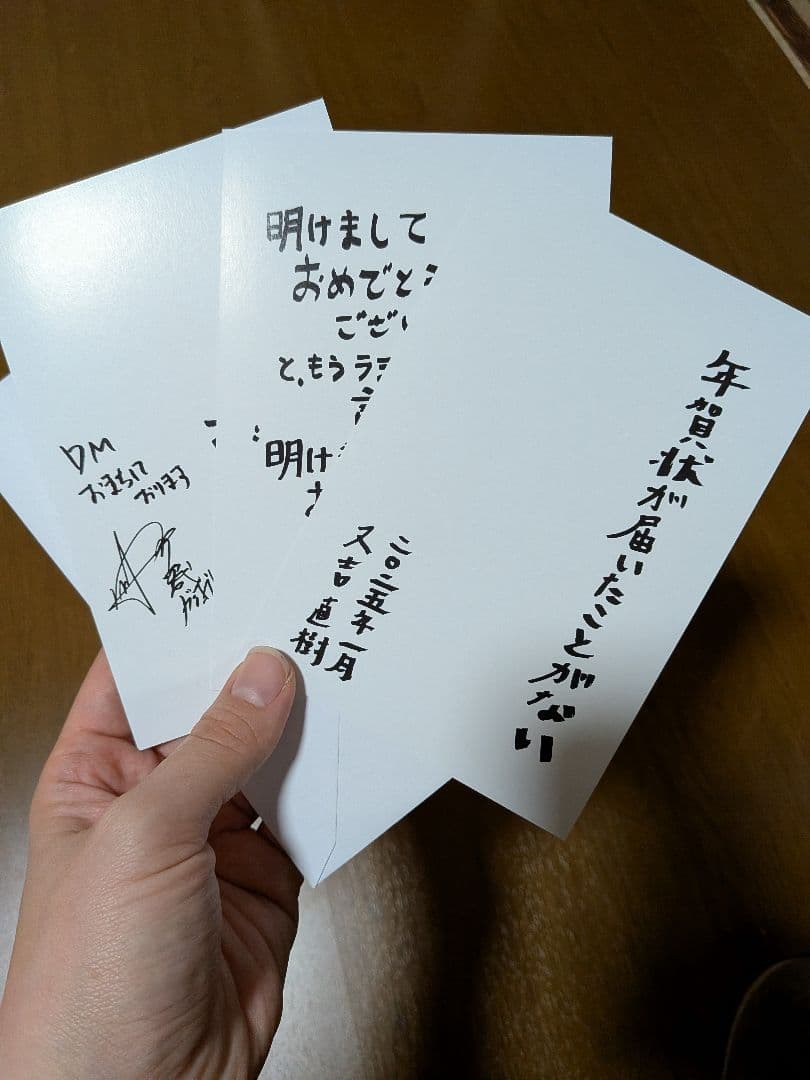 年賀状が届いたことがない
二〇二五年一月
又吉直樹
明けまして
おめでとう
ござい
と、もう
明け
DM
おまちして
おります